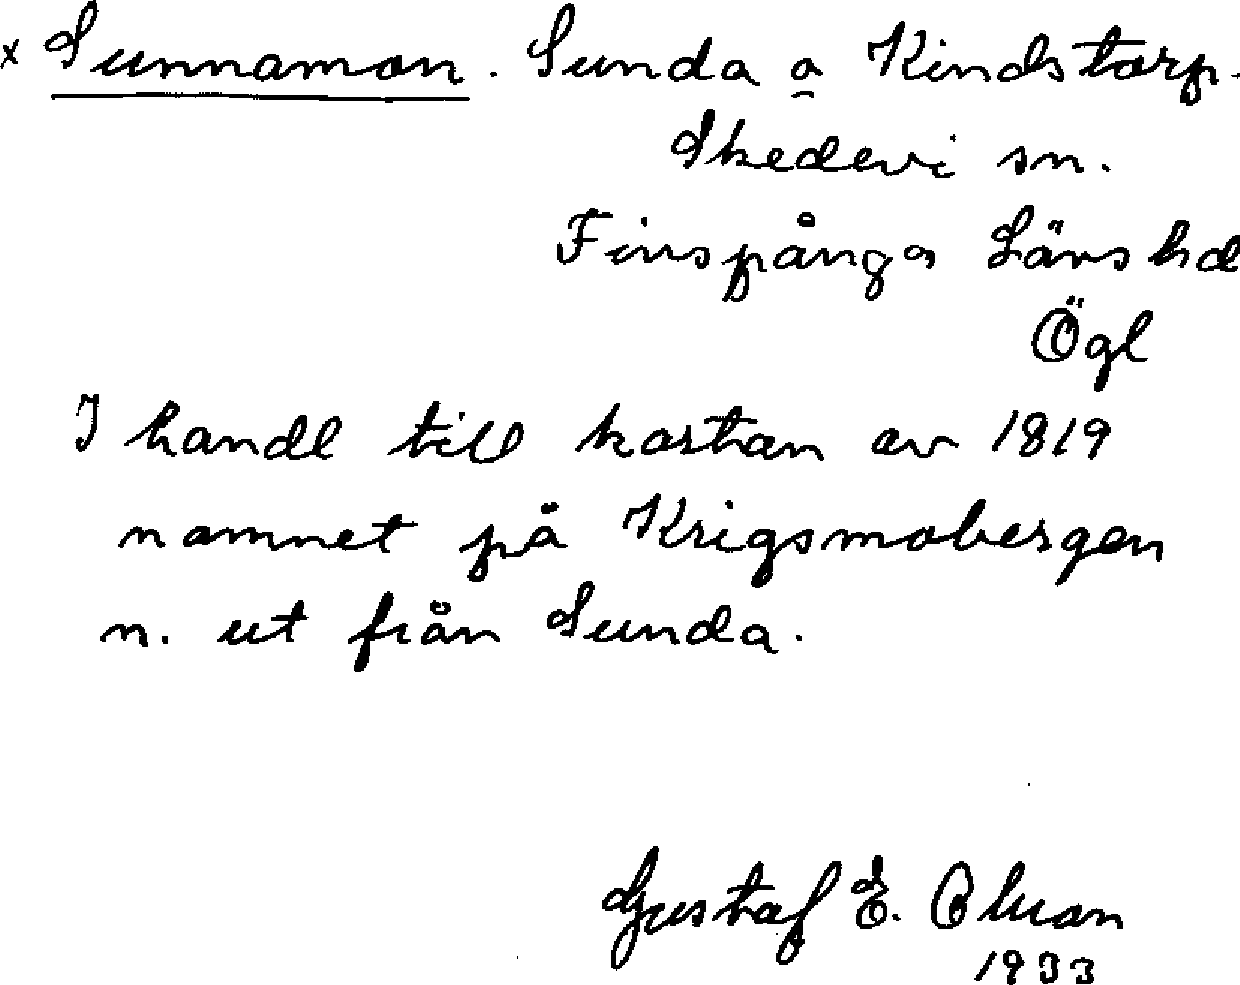 x Sunnamon. Sunda a Kindstorp.
Skedevi sn.
Finspånga Läns hd
Ögl
I handl till kartan av 1819
namnet på Krigsmobergen
n. ut från Sunda.
Gustaf E.
1933